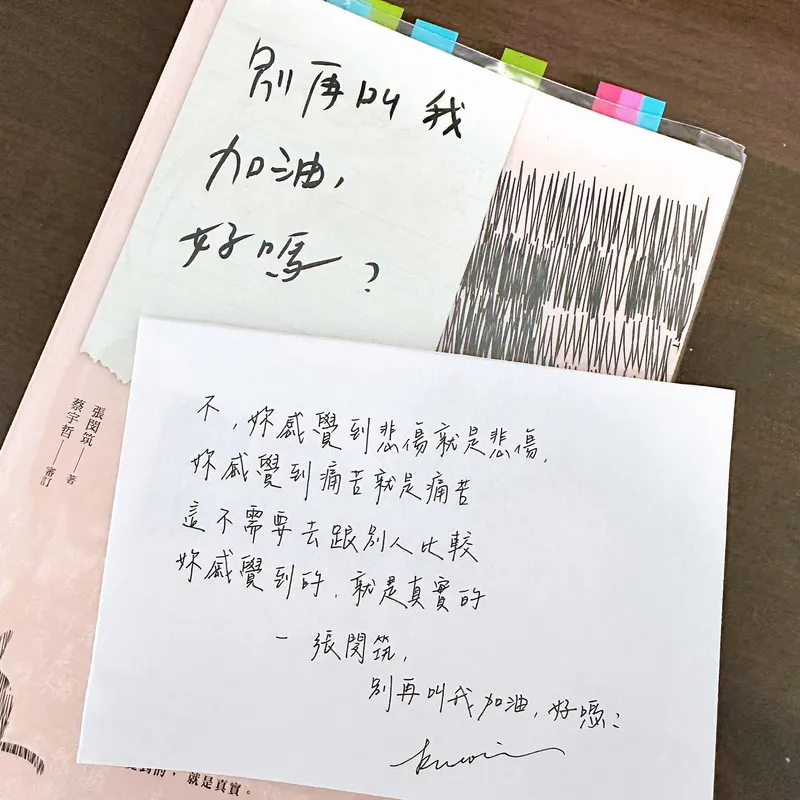 別再叫我
加油,
好嗎?
張閔筑——著
蔡宇哲——審訂
不,妳感覺到悲傷就是悲傷,
妳感覺到痛苦就是痛苦
這不需要去跟別人比較
妳感覺到的,就是真實的
— 張閔筑,
別再叫我加油,好嗎?
就是真實。